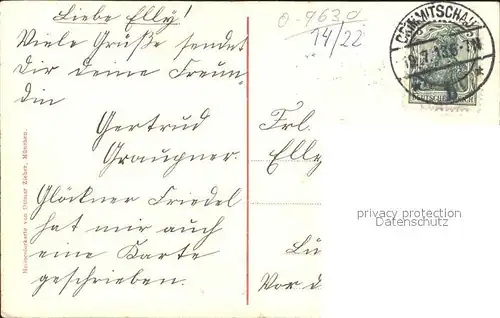 Liebe Elly!
Viele Grüße sendet
dir deine Freun-
din
Gertrud
Graupner.
Glöckner Friedel
hat mir auch
eine Karte
geschrieben.
O-9630
14/22
CRIMMITSCHAU
Frl.
Elly
Vor d
privacy protection
Datenschutz
Manenderkarte von Ottmar Zieher, München.